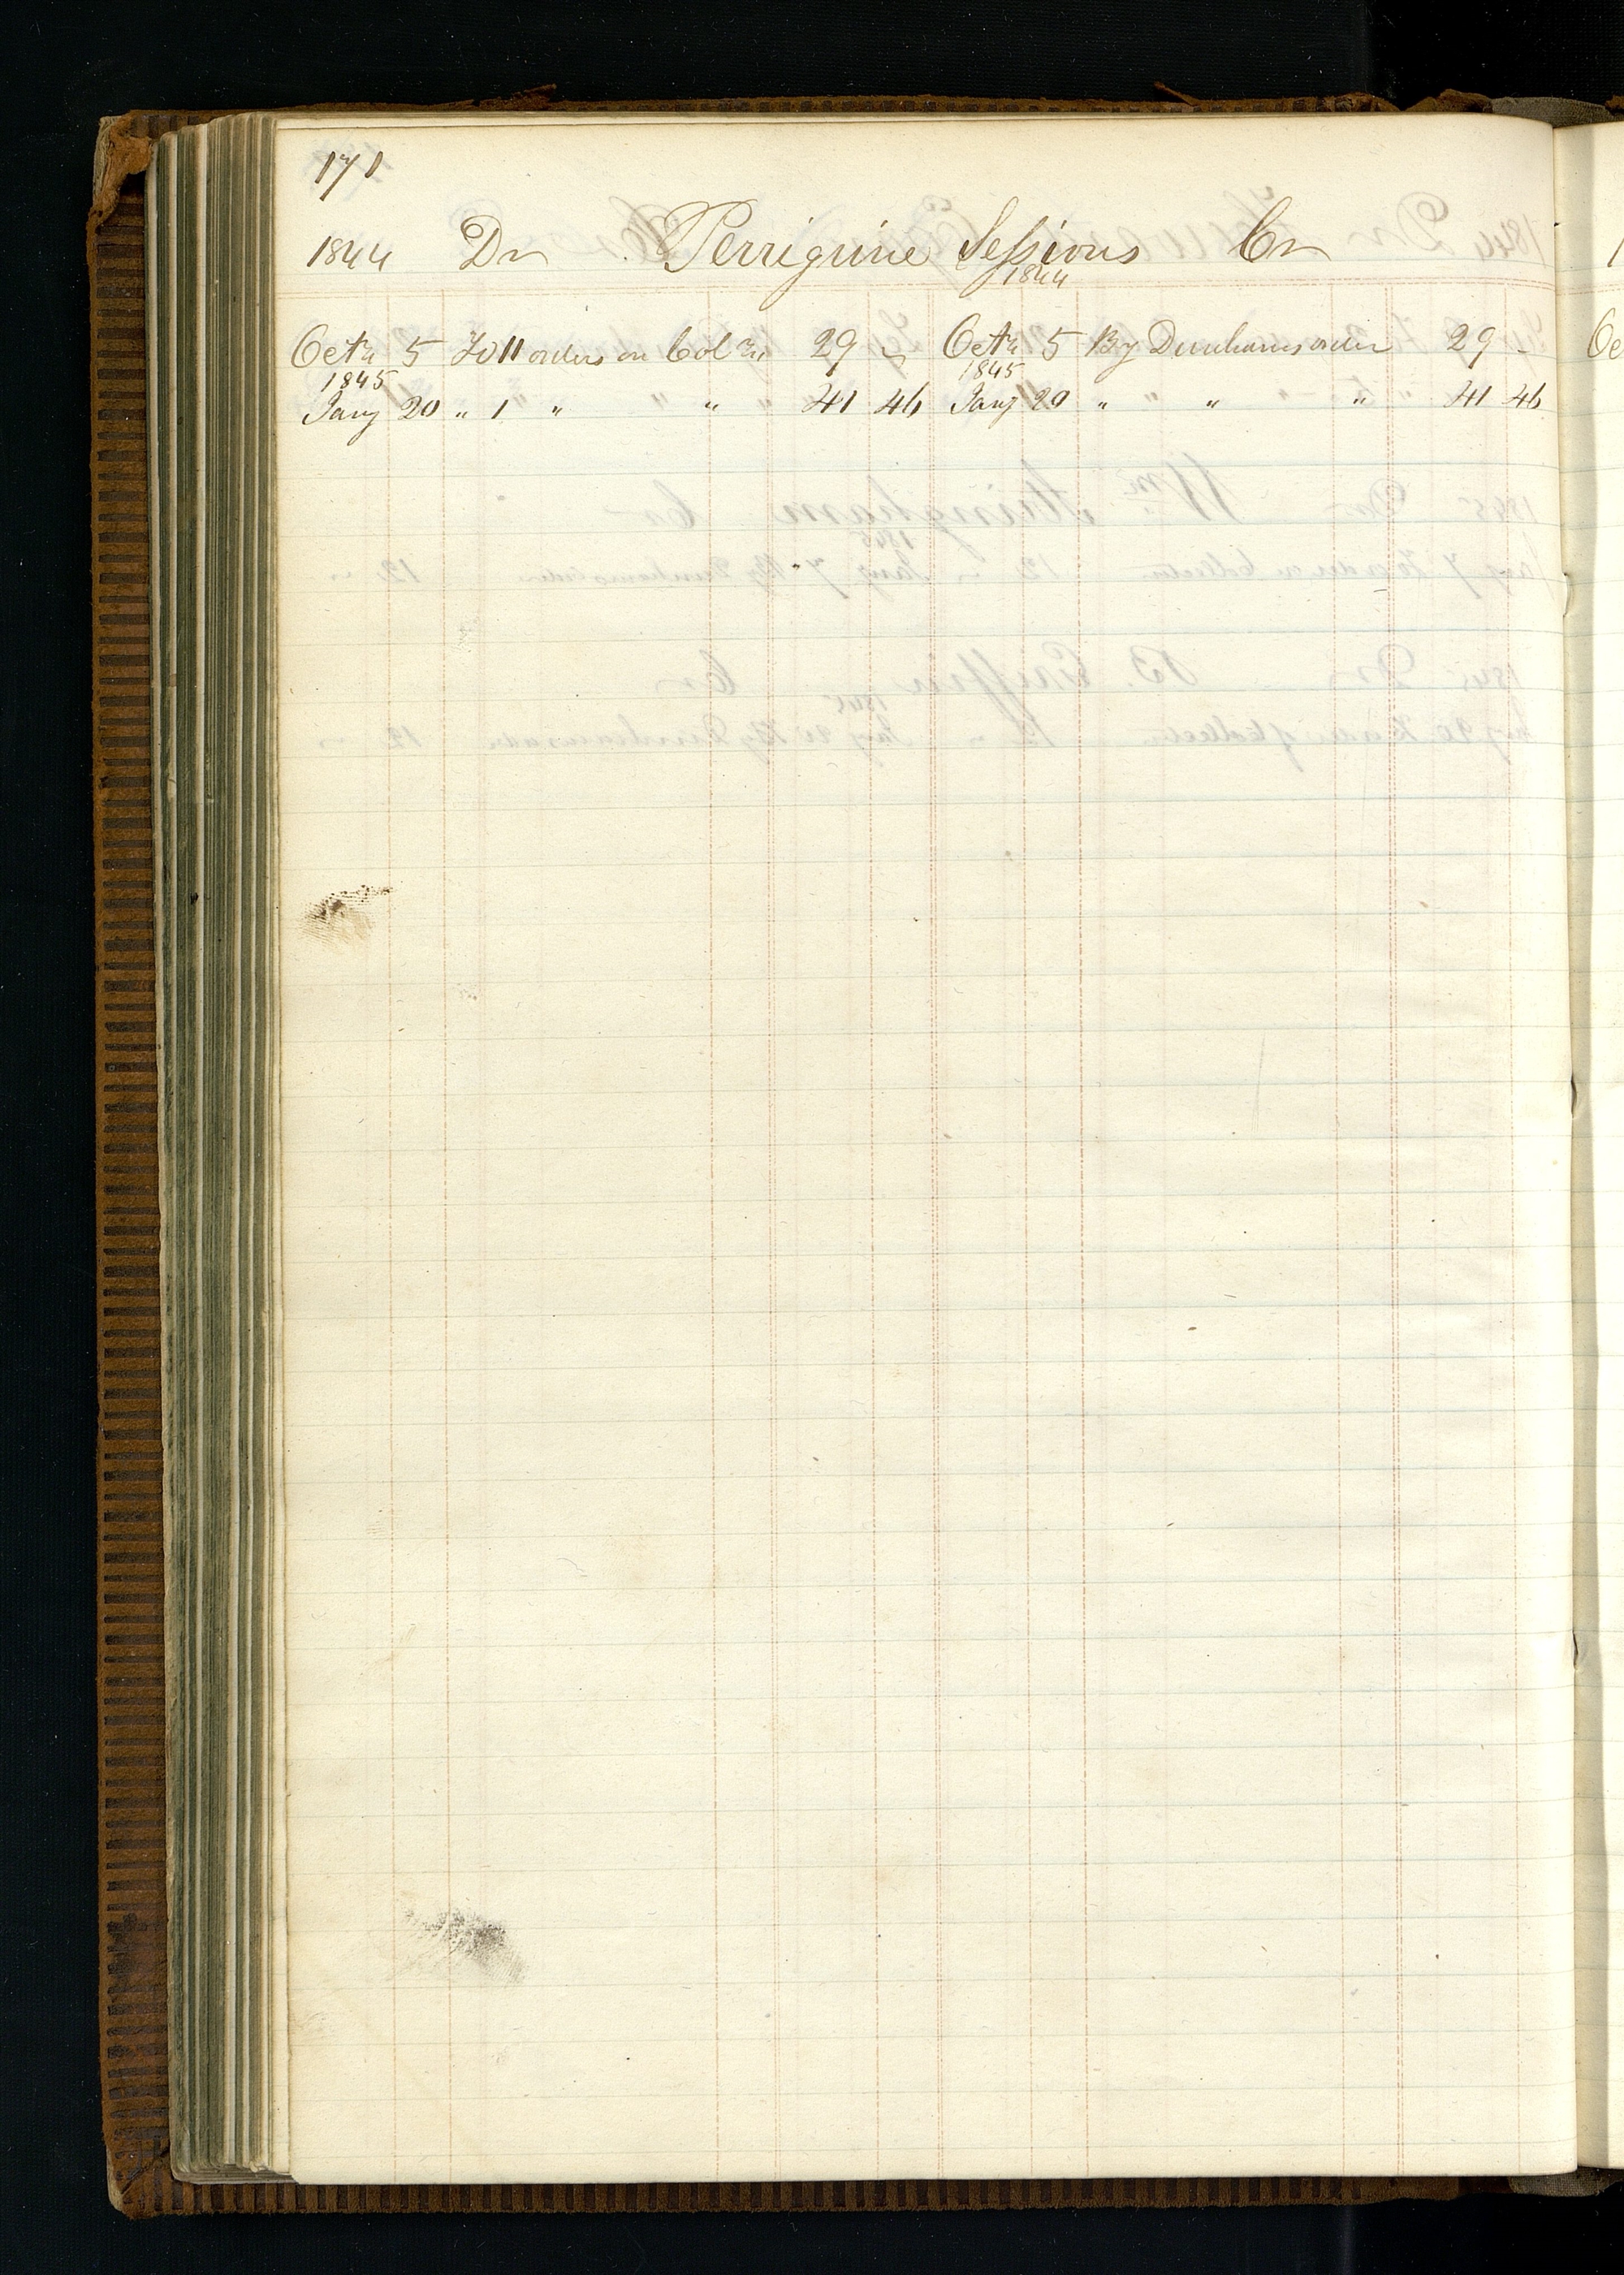 171
1844 Dr Perrigrine Sessions Cr
1844
Octr 5 To 11 orders on Col tr 29 " Octr 5 By Dunhams order 29 -
1845 1845
Jany 20 " 1 " " 41 46 Jany 20 " " " 41 46